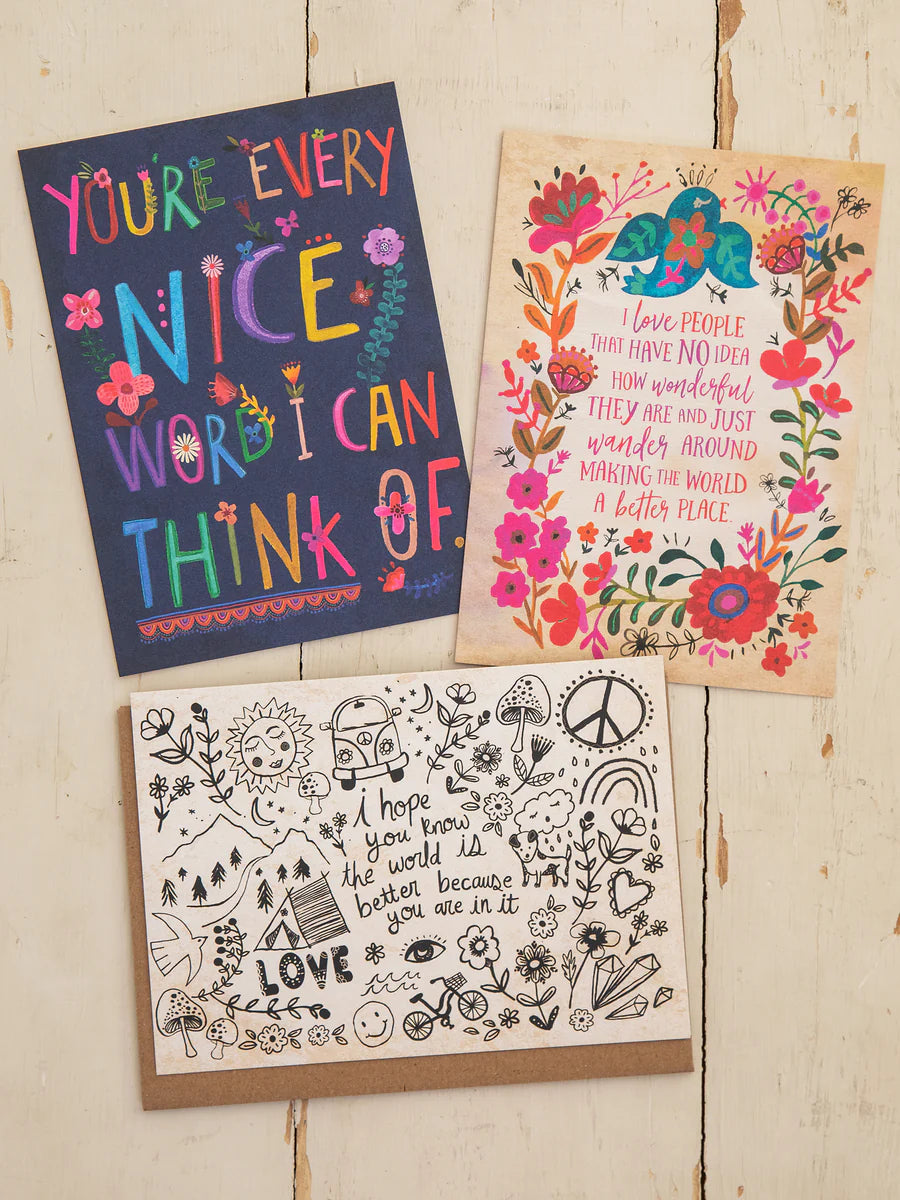 YOU'RE EVERY
NICE
WORD I CAN
THINK OF.
I love PEOPLE
THAT HAVE NO IDEA
HOW wonderful
THEY ARE AND JUST
wander AROUND
MAKING THE WORLD
A better PLACE.
i hope
you know
the world is
better because
you are in it
LOVE